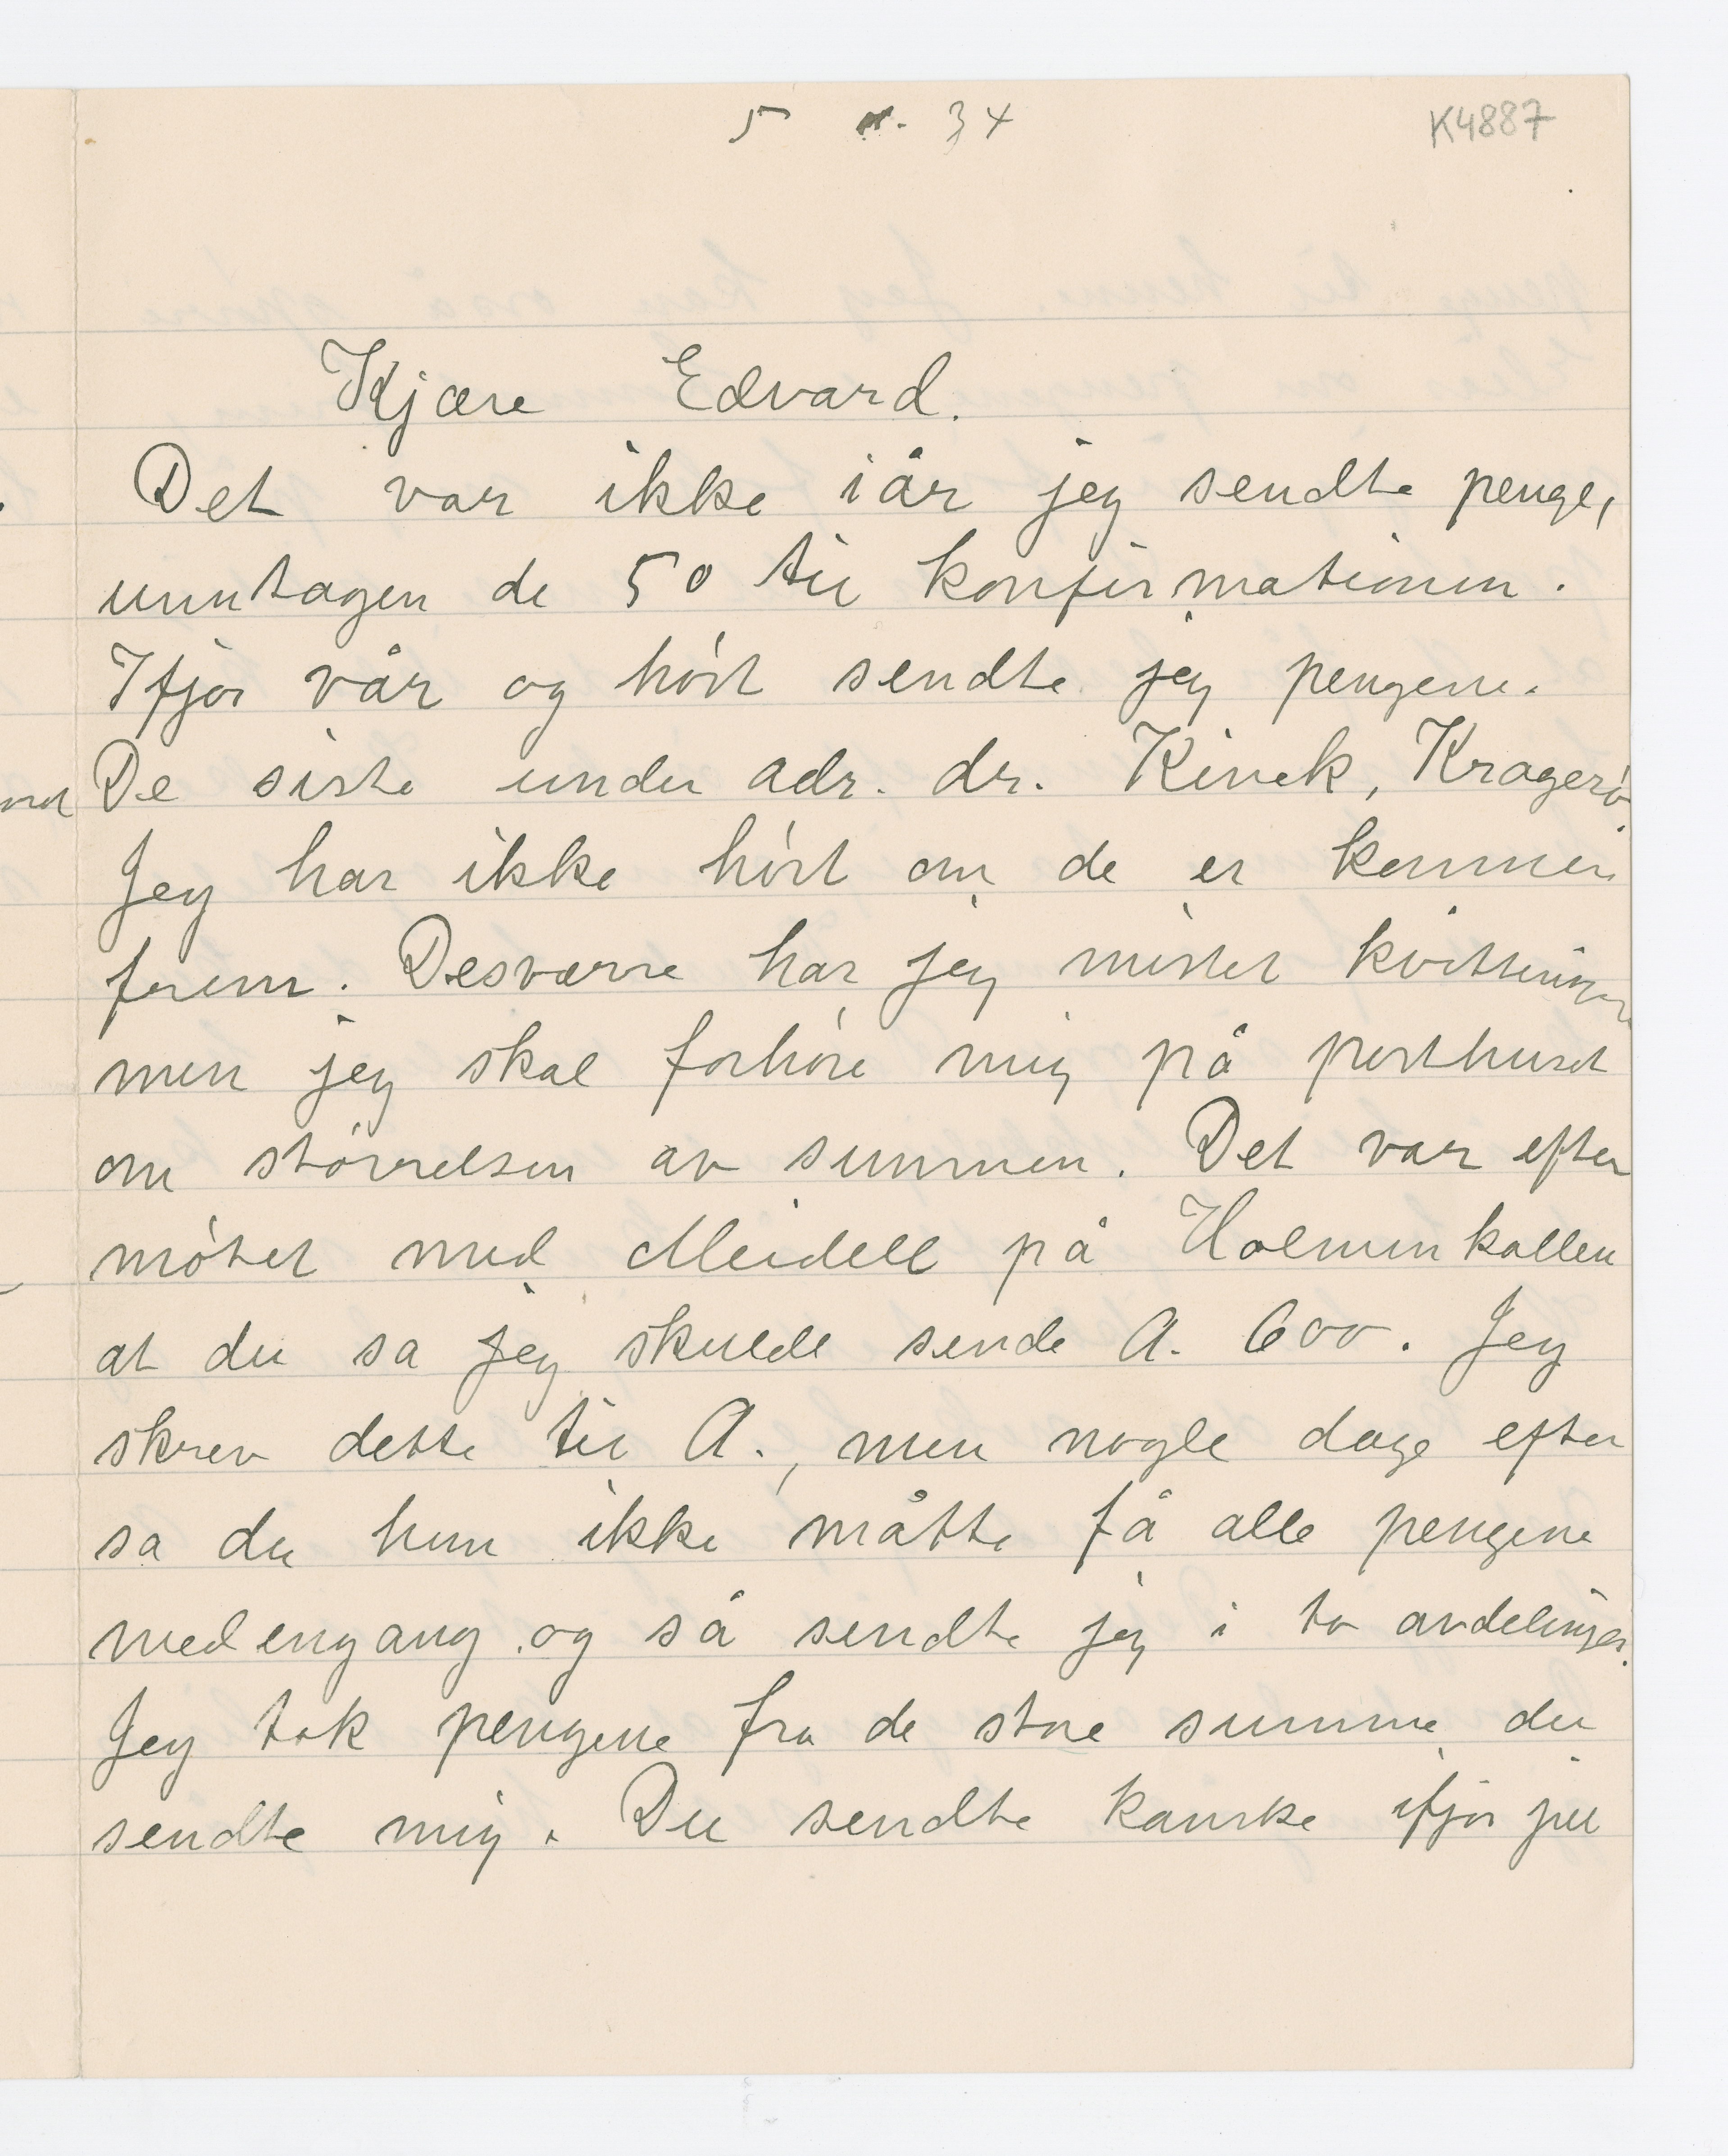 5 . 34
K4887
Kjære Edvard.
Det var ikke iår jeg sendte penge,
unntagen de 50 til konfirmationen.
Ifjor vår og høst sendte jeg pengene.
De siste under adr. dr. Kinck, Kragerø.
Jeg har ikke hørt om de er kommen
frem. Desværre har jeg mistet kvitteringen
men jeg skal forhøre mig på posthuset
om størrelsen av summen. Det var efter
møtet med Meidell på Holmenkollen
at du sa jeg skulde sende A. 600. Jeg
skrev dette til A., men nogle dage efter
sa du hun ikke måtte få alle pengene
med engang og så sendte jeg i to avdelinger.
Jeg tok pengene fra de store summe du
sendte mig. Du sendte kanske ifjor jul